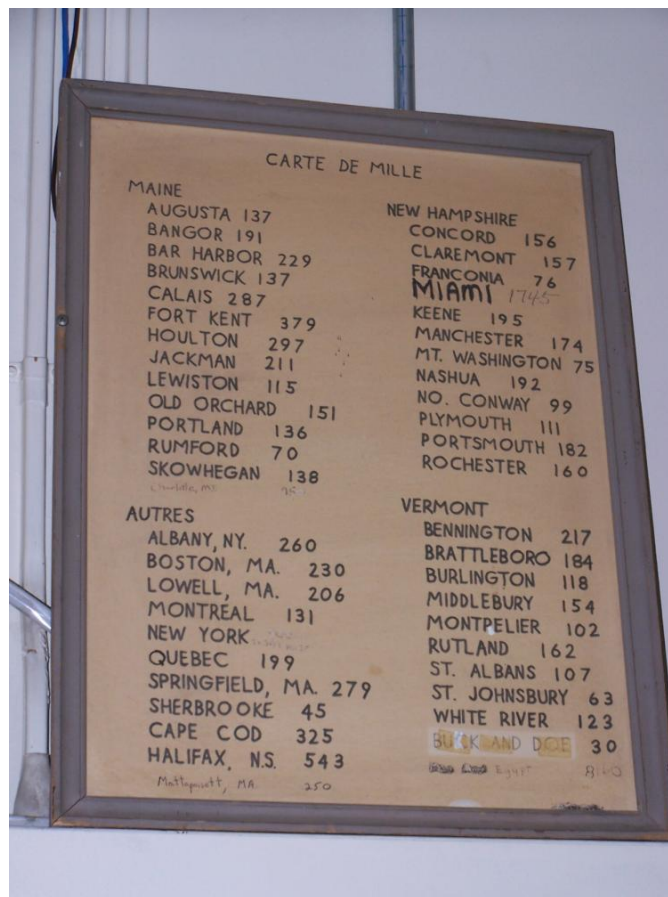 CARTE DE MILLE
MAINE
AUGUSTA 137
BANGOR 191
BAR HARBOR 229
BRUNSWICK 137
CALAIS 287
FORT KENT 379
HOULTON 297
JACKMAN 211
LEWISTON 115
OLD ORCHARD 151
PORTLAND 136
RUMFORD 70
SKOWHEGAN 138
AUTRES
ALBANY, NY. 260
BOSTON, MA. 230
LOWELL, MA. 206
MONTREAL 131
NEW YORK
QUEBEC 199
SPRINGFIELD, MA. 279
SHERBROOKE 45
CAPE COD 325
HALIFAX, N.S. 543
MA. 250
NEW HAMPSHIRE
CONCORD 156
CLAREMONT 157
FRANCONIA 76
MIAMI 1745
KEENE 195
MANCHESTER 174
MT. WASHINGTON 75
NASHUA 192
NO. CONWAY 99
PLYMOUTH 111
PORTSMOUTH 182
ROCHESTER 160
VERMONT
BENNINGTON 217
BRATTLEBORO 184
BURLINGTON 118
MIDDLEBURY 154
MONTPELIER 102
RUTLAND 162
ST. ALBANS 107
ST. JOHNSBURY 63
WHITE RIVER 123
BUCK AND DOE 30
Egypt 8160